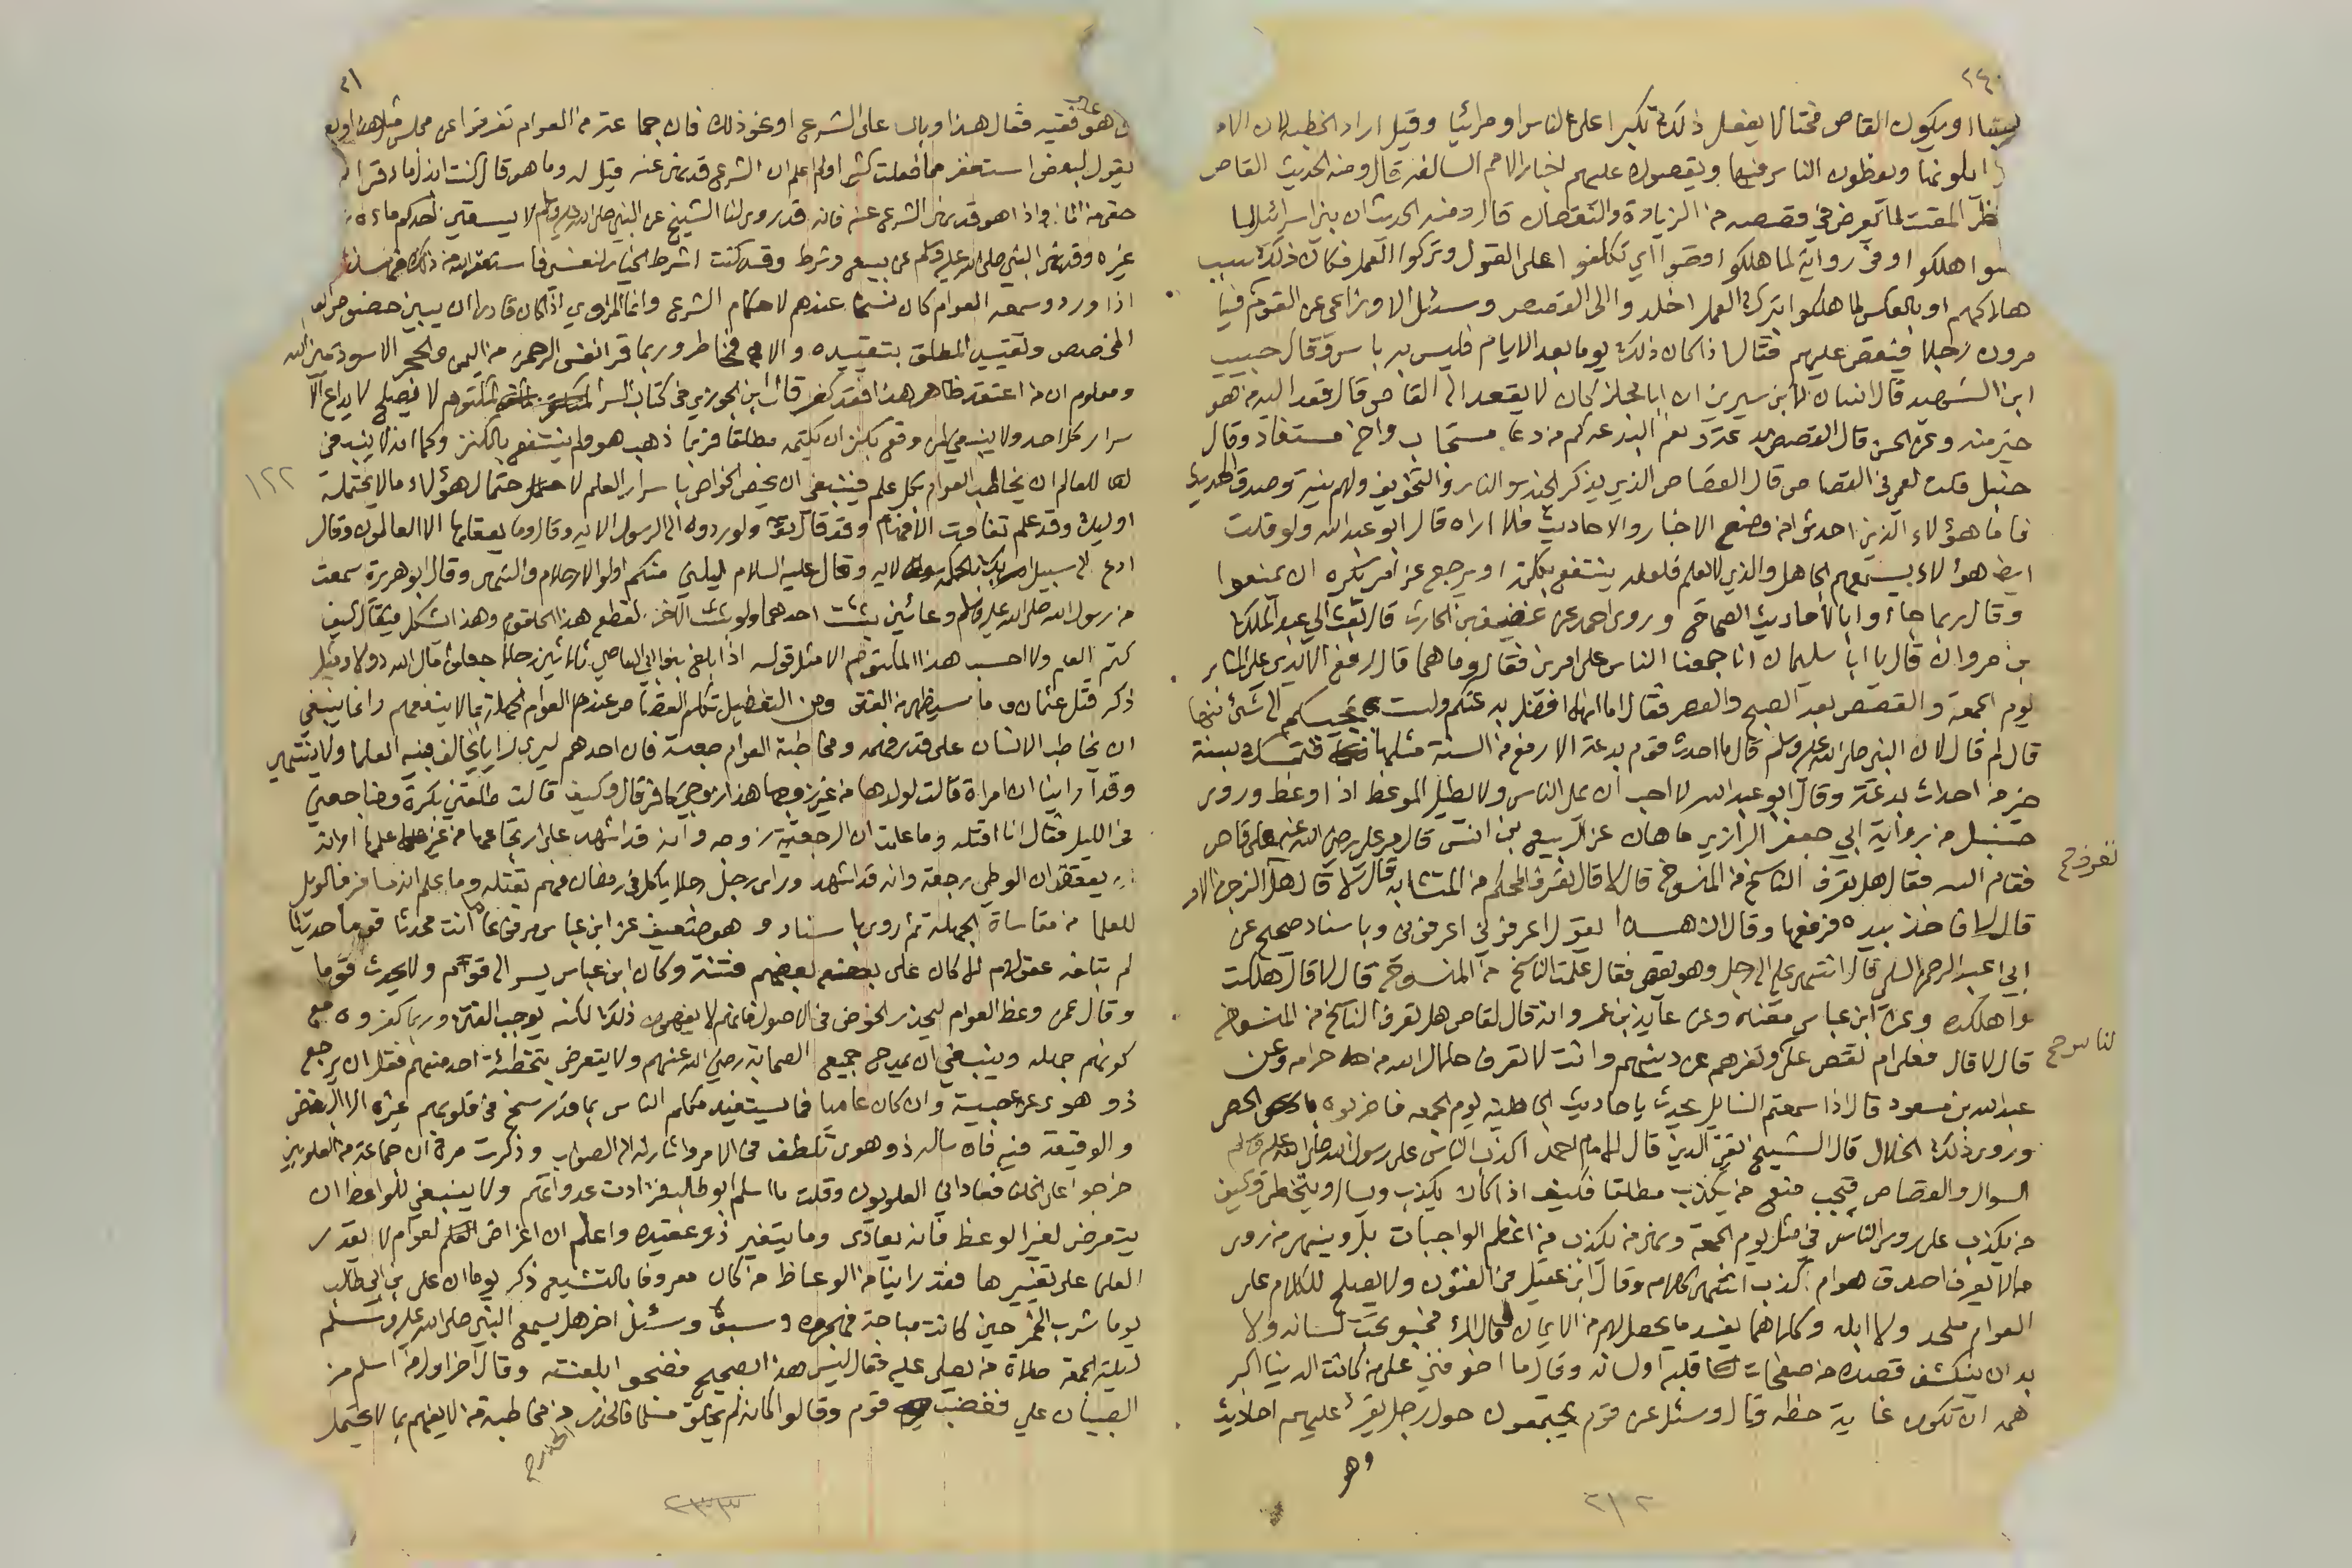 ٢٤٠
او يكون القاص مختالا يفعل ذلك تكبرا على الناس او مرائيا وقيل اراد الخطبة لان الامرا
يلونها ويعظون الناس فيها ويقصون عليهم اخبار الامم السالفة قال ومنه الحديث القاص
ينتظر المقت لما يعرض في قصصه من الزيادة والنقصان قال ومنه الحديث ان بني اسرائيل لما
قصوا هلكوا وفي رواية لما هلكوا قصوا اي تكلفوا على القول وتركوا العمل فكان ذلك سبب
هلاكهم او بالعكس لما هلكوا بترك العمل اخلدوا الى القصص وسئل الاوزاعي عن القوم
يأمرون رجلا فيقص عليهم فقال اذا كان ذلك يوما بعد الايام فليس به باس وقال حبيب
ابن الشهيد قال انسان لابن سيرين ان ابا مجلز كان لا يقعد الى القاص قال قعد اليه من هو
خير منه وعن الحسن قال القصص بدعة ونعم البدعة كم من دعا مستجاب واخ مستفاد وقال
حنبل قلت لعمي في القصاص قال القصاص الذي يذكر الجنة والنار والتخويف ولهم نية وصدق الحديث
فاما هؤلاء الذين احدثوا من وضع الاخبار والاحاديث فلا اراه قال ابو عبد الله ولو قلت
ايضا هؤلاء يسمعهم الجاهل والذي لا يعلم فلعله ينتفع بكلمة او يرجع عن امر يكره ان يمنعوا
وقال ربما جاءوا بالاحاديث الصحاح وروى احمد عن غضيف بن الحارث قال بعث الي عبد الملك
بن مروان قال يا ابا سليمان انا جمعنا الناس على امرين فقال وما هما قال رفع الايدي على المنابر
يوم الجمعة والقصص بعد الصبح والعصر فقال اما انها افضل بدعتكم ولست بمجيبكم الى شئ منها
قال لم قال لان النبي صلى الله عليه وسلم قال ما احدث قوم بدعة الا رفع من السنة مثلها فتمسك بسنة
خير من احداث بدعة وقال ابو عبد الله لا احب ان يمل الناس ولا يطيل الموعظ اذا وعظ وروى
حنبل من رواية ابي جعفر الرازي ماهان عن الربيع بن انس قال مر علي رضي الله عنه على قاص
فقام اليه فقال هل تعرف الناسخ من المنسوخ قال لا قال تعرف المحكم من المتشابه قال لا قال هل الزجر من الامر
قال لا فاخذ بيده فرفعها وقال ان هذا يقول اعرفوني اعرفوني وباسناد صحيح عن
ابي عبد الرحمن السلمي قال انتهى علي الى رجل وهو يقص فقال علمت الناسخ من المنسوخ قال لا قال هلكت
واهلكت وعن ابن عباس معناه وعن عابد بن عمرو انه قال لقاص هل تعرف الناسخ من المنسوخ
قال لا قال فعلى ام تقص على وتغرهم عن دينهم وانت لا تعرف حلال الله من حرامه وعن
عبد الله بن مسعود قال اذا سمعتم السايل يحدث باحاديث الجاهلية يوم الجمعة فاضربوه بالحصى
وروى ذلك الخلال قال الشيخ تقي الدين قال الامام احمد اكذب الناس على رسول الله صلى الله عليه وسلم
السوال والقصاص فيجب منع من يكذب مطلقا فكيف اذا كان يكذب ويسال ويتخطى وكيف
من يكذب على روس الناس في مثل يوم الجمعة ونهي من يكذب من اعظم الواجبات بل وينهى من روى
ما لا يعرف اصدق هو ام كذب انتهى كلامه وقال ابن عقيل في الفنون ولا يصلح للكلام على
العوام ملحد ولا ابله وكلاهما يفسد ما يحصل لهم من الايمان قال المرء مخبو تحت لسانه ولا
بد ان ينكشف قصده من صفحات قلبه او لسانه وقال ما اخوفني على من كانت الدنيا اكبر
همه ان تكون غاية حظه وقال وسئل عن قوم يجتمعون حول رجل يقرأ عليهم احاديث
وهو
تعرف صح
لنا س صح
٢١٢
٢١
غير فقيه فقال هذا وبال على الشرع او نحو ذلك فان جماعة من العوام تفرقوا عن مجلس مثل هذا وبعضهم
يقول لبعض استغفر مما فعلت كثيرا ولم اعلم ان الشرع قد نهى عنه قيل له وما هو قال كنت ابذل ماء قراحا
حقي من الماء واذا هو قد نهى الشرع عنه فانه قد روى لنا الشيخ عن النبي صلى الله عليه وسلم لا يسقين احدكم ماءه زرع
غيره وقد نهى النبي صلى الله عليه وسلم عن بيع وشرط وقد كنت اشرط الخيار لنفسي فاستغفر الله من ذلك
اذا ورد وسمعه العوام كان نسخا عندهم لاحكام الشرع وانما الراوي اذا كان قادرا ان يبين خصوص العموم
المخصص وتقييد المطلق بتقييده والا فمخاطر وربما قرا نفس الرحمن من اليمن والحجر الاسود يمين الله
ومعلوم ان من اعتقد ظاهر هذا فقد كفر قال ابن الجوزي في كتاب السر المكتوم لا يصلح لايداع الا
سرار كل احد ولا ينبغي لمن وقع بكنز ان يكتمه مطلقا فربما ذهب هو ولم ينتفع بالكنز وكما انه لا ينبغي
للعالم ان يخاطب العوام بكل علم فينبغي ان يخص الخواص باسرار العلم لاحتمال هؤلاء ما لا يحتمله
اولئك وقد علم تفاوت الافهام وقد قال تعالى ولو ردوه الى الرسول الاية وقال وما يعقلها الا العالمون وقال
ادع الى سبيل ربك بالحكمة الاية وقال عليه السلام ليليني منكم اولو الاحلام والنهى وقال ابو هريرة سمعت
من رسول الله صلى الله عليه وسلم وعائين بثثت احدهما ولو بثثت الاخر لقطع هذا الحلقوم وهذا اشكل فيقال كيف
كتم العلم ولا احسب هذا المكتوم الا مثل قوله اذا بلغ بنو ابي العاص ثلاثين رجلا جعلوا مال الله دولا ومثل
ذكر قتل عثمان وما سيظهر من الفتن ومن التغفيل تكلم القصاص عند العوام الجهلة بما لا ينفعهم وانما ينبغي
ان يخاطب الانسان على قدر فهمه ومخاطبة العوام صعبة فان احدهم ليرى رايا يخالف فيه العلما ولا ينتهي
وقد راينا ان امراة قالت لولدها من غير زوجها هذا زوجي كافر قال وكيف قالت طلقني بكرة وضاجعني
في الليل فقال انا اقتله وما علم ان الرجعية زوجه وانه قد اشهد على ارتجاعها من غير علمها او انه
يعتقد ان الوطي رجعة وانه قد اشهد وراى رجل رجلا ياكل في رمضان فهم بقتله وما علم انه مسافر فالويل
للعلما من مقاساة الجهلة ثم روى باسناد وهو ضعيف عن ابن عباس مرفوعا ما انت محدثا قوما حديثا
لم تبلغه عقولهم الا كان على بعضهم فتنة وكان ابن عباس يسر الى قوم ولا يحدث قوما
وقال عن وعظ العوام ليحذر الخوض في الاصول فانهم لا يفهمون ذلك لكنه يوجب الفتن وربما كفروه مع
كونهم جهلة وينبغي ان يمدح جميع الصحابة رضي الله عنهم ولا يتعرض بتخطئة احد منهم فقل ان يرجع
ذو هوى عن عصبية وان كان عاميا فما يستفيد مكلم الناس بما قد رسخ في قلوبهم غيره الا البغض
والوقيعة فيه فان ساله ذو هوى تلطف في الامر واشار له الى الصواب وذكرت مرة ان جماعة من العلويين
خرجوا على الخلفا فعاداني العلويون وقلت ما اسلم ابو طالب فزادت عداوتهم ولا ينبغي للواعظ ان
يتعرض لغير الوعظ فانه يعادى وما يتغير ذو عقيدة واعلم ان اغراض العوام لا يقدر
العلما على تغييرها فقد راينا من الوعاظ من كان معروفا بالتشيع ذكر يوما ان علي بن ابي طالب
يوما شرب الخمر حين كانت مباحة فهجروه وسبوه وسئل اخر هل يسمع النبي صلى الله عليه وسلم
ليلة الجمعة صلاة من يصلي عليه فقال ليس هذا الصحيح فضجوا بلعنته وقال اخر اول من اسلم من
الصبيان علي فغضب قوم وقالوا كانه لم يخلق مسلما فالحذر من مخاطبة من لا يفهم بما لا يحتمل
الحذر صح
١٢٢
٢٣٣